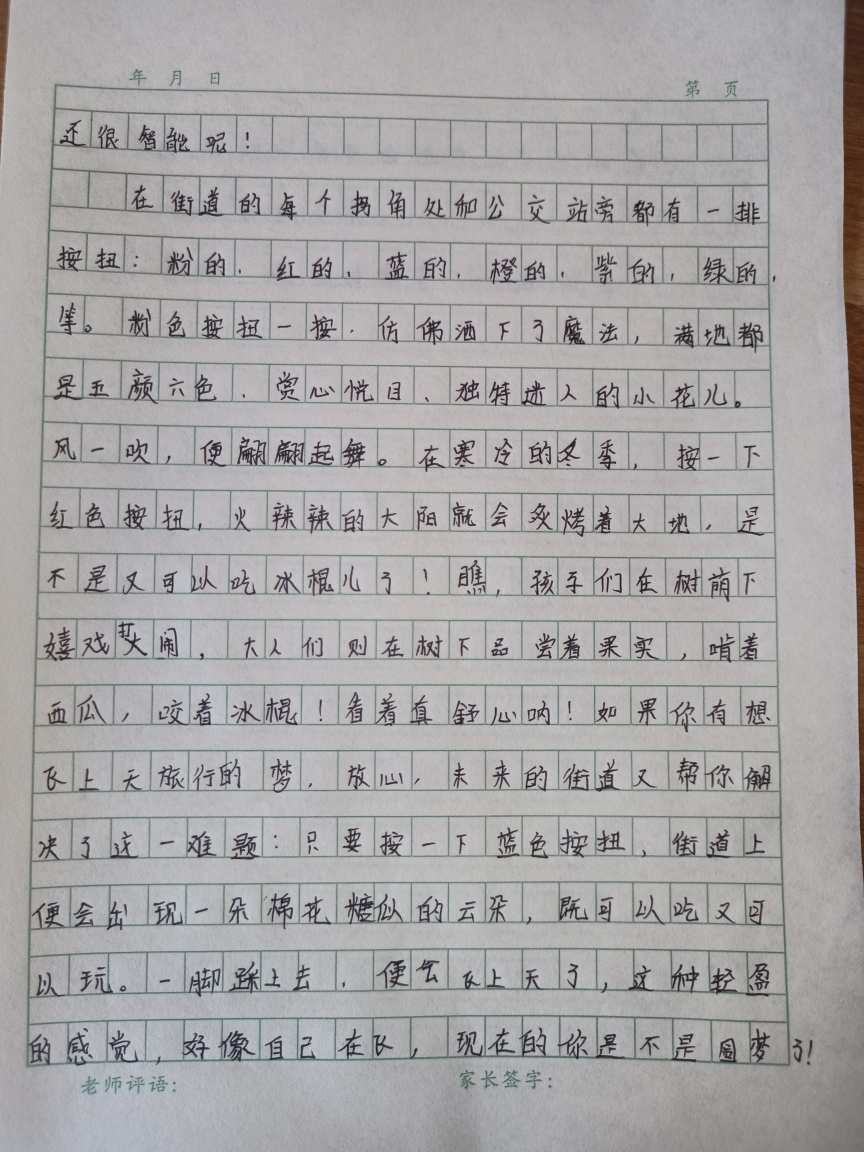 年 月 日
第 页
还很智能呢！
在街道的每个拐角处和公交站旁都有一排
按扭：粉的、红的、蓝的、橙的、紫的，绿的，
等。粉色按扭一按，仿佛洒下了魔法，满地都
是五颜六色、赏心悦目、独特迷人的小花儿。
风一吹，便翩翩起舞。在寒冷的冬季，按一下
红色按扭，火辣辣的大阳就会炙烤着大地，是
不是又可以吃冰棍儿了！瞧，孩子们在树荫下
嬉戏打闹，大人们则在树下品尝着果实，啃着
西瓜，咬着冰棍！看着真舒心呐！如果你有想
飞上天旅行的梦，放心，未来的街道又帮你解
决了这一难题：只要按一下蓝色按扭，街道上
便会出现一朵棉花糖似的云朵，既可以吃又可
以玩。一脚踩上去，便会飞上天了，这种轻盈
的感觉，好像自己在飞，现在的你是不是圆梦了！
老师评语：
家长签字：